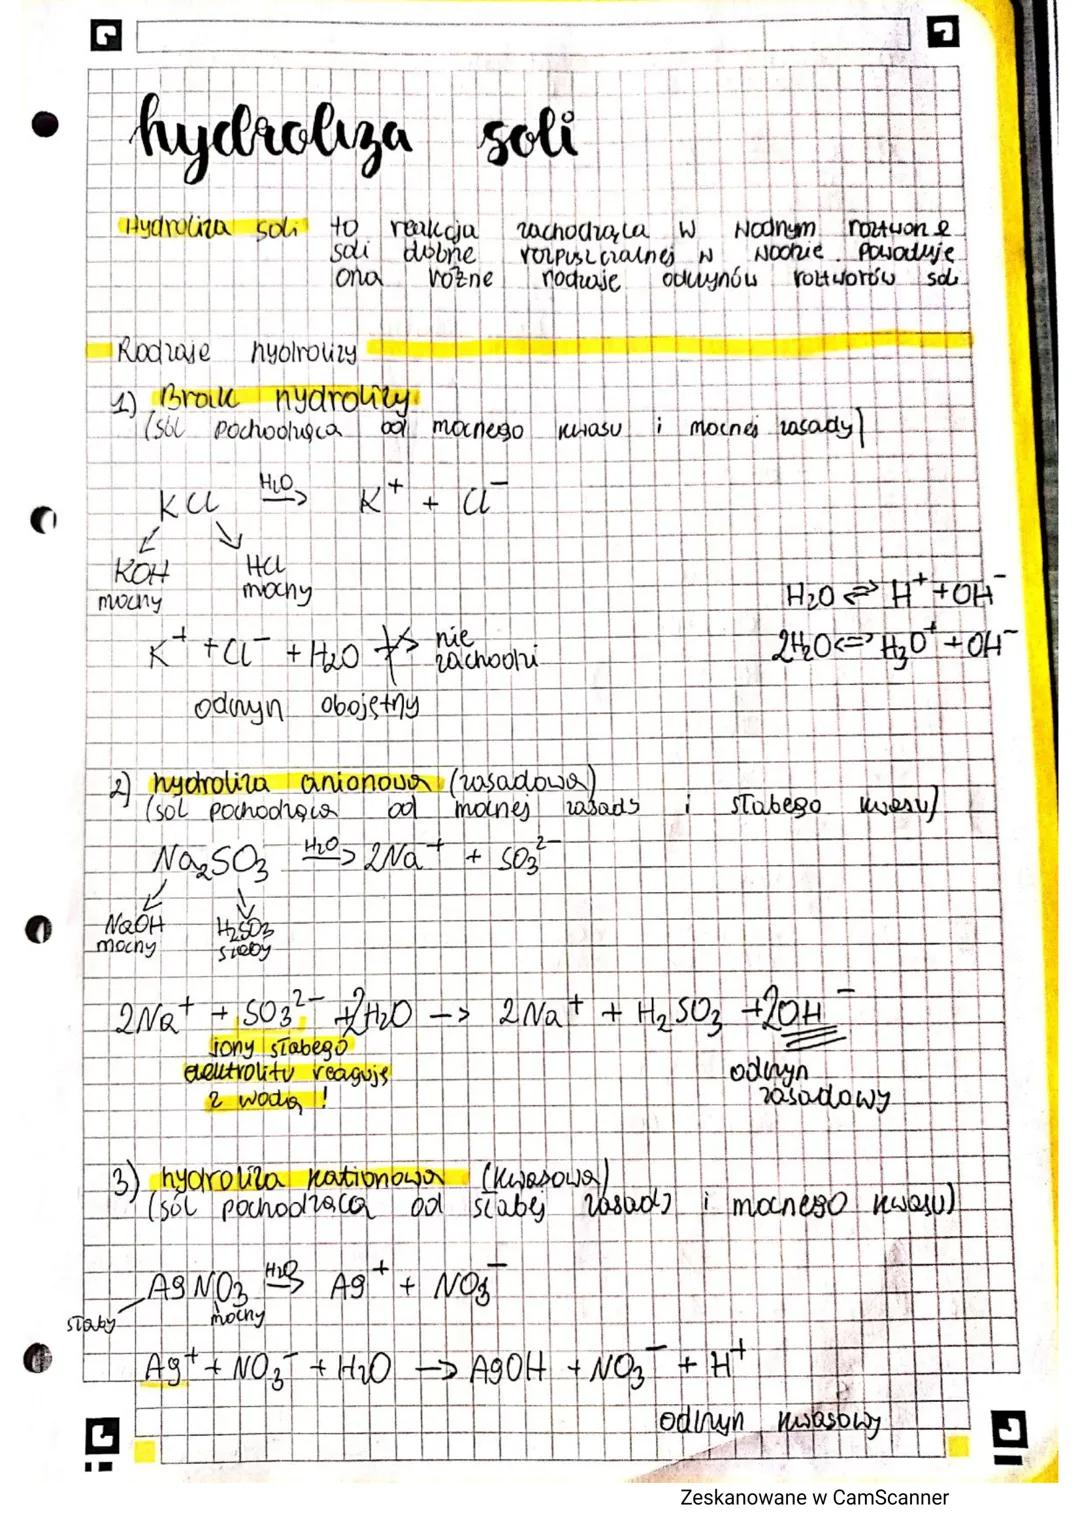 hydroliza soli
Hydroliza soli to reakcja zachodząca w wodnym roztworze
soli dobrze rozpuszczalnej w wodzie. Powoduje
ona różne rodzaje odczynów roztworów soli
Rodzaje hydrolizy
1) Brak hydrolizy
(sól pochodząca od mocnego kwasu i mocnej zasady)
KCl H₂O→ K⁺ + Cl⁻
KOH HCl
mocny mocny
H₂O ⇌ H⁺ + OH⁻
K⁺ + Cl⁻ + H₂O ↛ nie zachodzi
2H₂O <=> H₃O⁺ + OH⁻
odczyn obojętny
2) hydroliza anionowa (zasadowa)
(sól pochodząca od mocnej zasady i słabego kwasu)
Na₂SO₃ H₂O→ 2Na⁺ + SO₃²⁻
NaOH H₂SO₃
mocny słaby
2Na⁺ + SO₃²⁻ + 2H₂O → 2Na⁺ + H₂SO₃ + 2OH⁻
jony słabego
elektrolitu reagują
z wodą !
odczyn
zasadowy
3) hydroliza kationowa (kwasowa)
(sól pochodząca od słabej zasady i mocnego kwasu)
AgNO₃ H₂O→ Ag⁺ + NO₃⁻
słaby mocny
Ag⁺ + NO₃⁻ + H₂O → AgOH + NO₃⁻ + H⁺
odczyn kwasowy
Zeskanowane w CamScanner